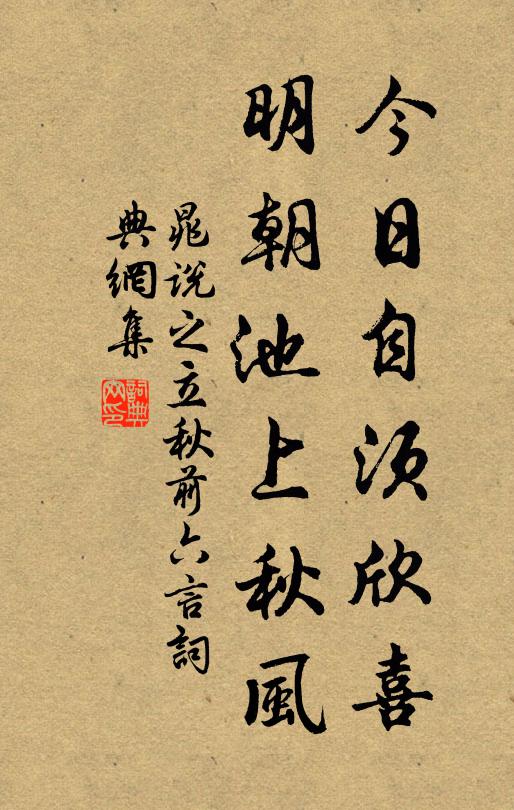 今日自须欣喜
明朝池上秋風
晁说之立秋前六言詞
典網集
詞典
网印